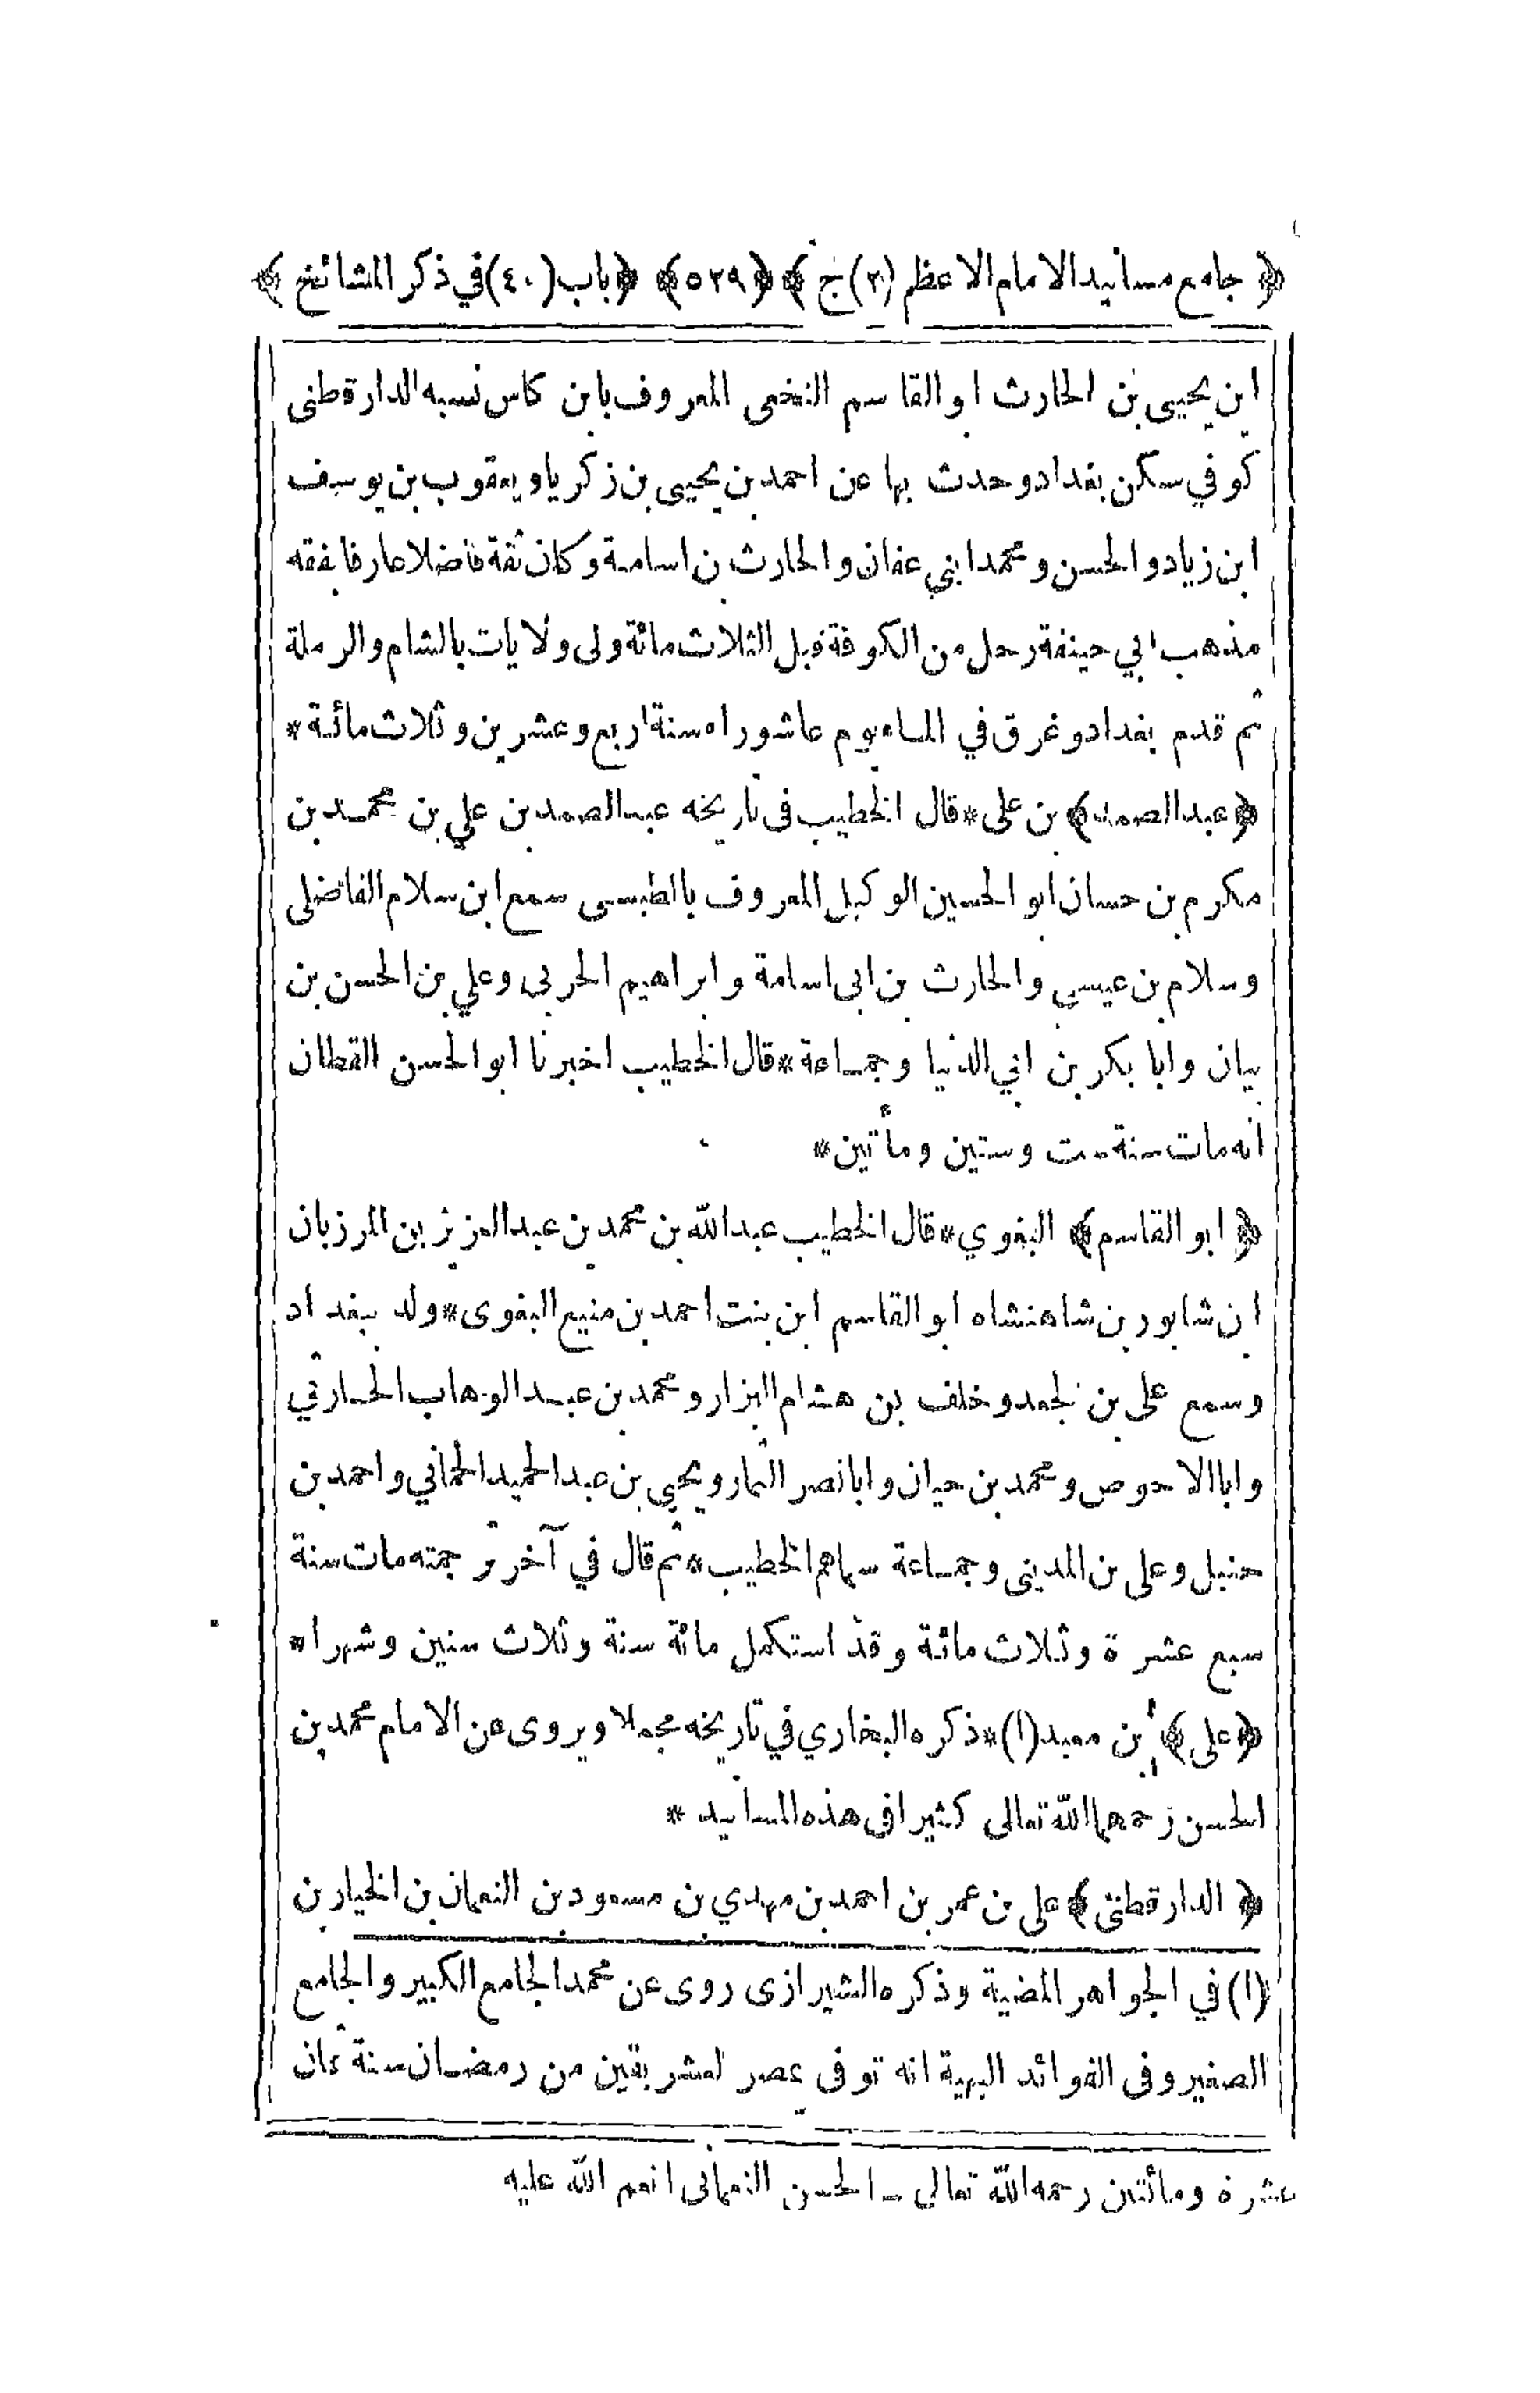 ﴿ جامع مسانيد الامام الاعظم (٢) ج ﴾ ﴿ ٥٢٩ ﴾ ﴿ باب (٤٠) في ذكر المشائخ ﴾
ابن يحيى بن الحارث ابو القاسم النخعى المعروف بابن كاس نسبه الدارقطنى
كوفي سكن بغداد وحدث بها عن احمد بن يحيى بن زكريا ويعقوب بن يوسف
ابن زياد والحسن ومحمد ابني عفان والحارث بن اسامة وكان ثقة فاضلا عارفا بفقه
مذهب ابي حنيفة رحل من الكوفة قبل الثلاث مائة ولى ولايات بالشام والرملة
ثم قدم بغداد وغرق في الماء يوم عاشوراء سنة اربع وعشرين وثلاث مائة *
﴿ عبد الصمد ﴾ بن على * قال الخطيب فى تاريخه عبد الصمد بن علي بن محمد بن
مكرم بن حسان ابو الحسين الوكيل المعروف بالطبسى سمع ابن سلام الفاضلى
وسلام بن عيسى والحارث بن ابى اسامة وابراهيم الحربى وعلي بن الحسن بن
بيان وابا بكر بن ابي الدنيا وجماعة * قال الخطيب اخبرنا ابو الحسن القطان
انه مات سنة ست وستين ومأتين *
﴿ ابو القاسم ﴾ البغوي * قال الخطيب عبد الله بن محمد بن عبد العزيز بن المرزبان
ابن شابور بن شاهنشاه ابو القاسم ابن بنت احمد بن منيع البغوى * ولد ببغداد
وسمع على بن الجعد وخلف بن هشام البزار ومحمد بن عبد الوهاب الحارثي
وابا الاحوص ومحمد بن حيان وابا نصر التمار ويحيى بن عبد الحميد الحماني واحمد بن
حنبل وعلى بن المدينى وجماعة سماهم الخطيب * ثم قال في آخر ترجمته مات سنة
سبع عشرة وثلاث مائة وقد استكمل مائة سنة وثلاث سنين وشهرا *
﴿ على ﴾ بن معبد (١) * ذكره البخاري في تاريخه مجملا ويروى عن الامام محمد بن
الحسن رحمهما الله تعالى كثيرا فى هذه المسانيد *
﴿ الدارقطنى ﴾ على بن عمر بن احمد بن مهدي بن مسعود بن النعمان بن الخيار بن
(١) في الجواهر المضية وذكره الشيرازى روى عن محمد الجامع الكبير والجامع
الصغير وفى الفوائد البهية انه توفى عصر لعشر بقين من رمضان سنة ثمان
عشرة ومأتين رحمه الله تعالى ـ الحسن النعمانى انعم الله عليه